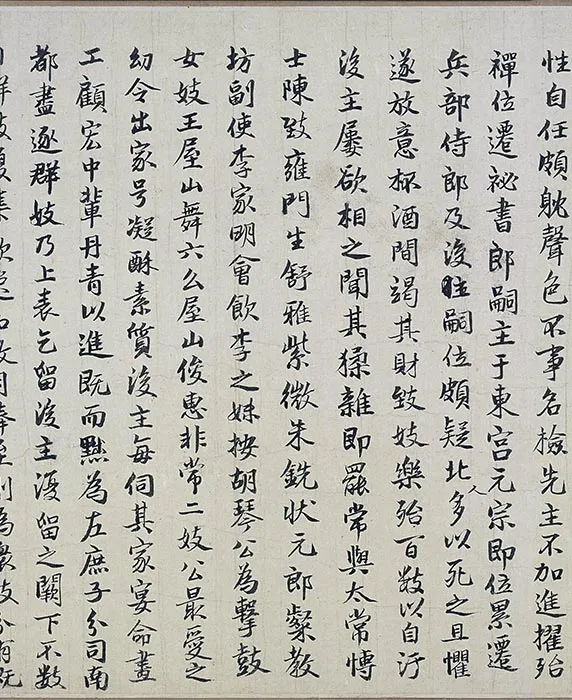 性自任頗躭聲色不事名檢先主不加進擢殆
禪位遷祕書郎嗣主于東宮元宗即位累遷
兵部侍郎及後主嗣位頗疑北人多以死之且懼
遂放意杯酒間竭其財致妓樂殆百數以自汙
後主屢欲相之聞其猱雜即罷常與太常愽
士陳致雍門生舒雅紫微朱銑狀元郎粲教
坊副使李家明會飲李之妹按胡琴公為擊鼓
女妓王屋山舞六幺屋山俊惠非常二妓公最愛之
幼令出家号凝酥素質後主每伺其家宴命畫
工顧宏中輩丹青以進既而黜為左庶子分司南
都盡逐群妓乃上表乞留後主復留之闕下不數